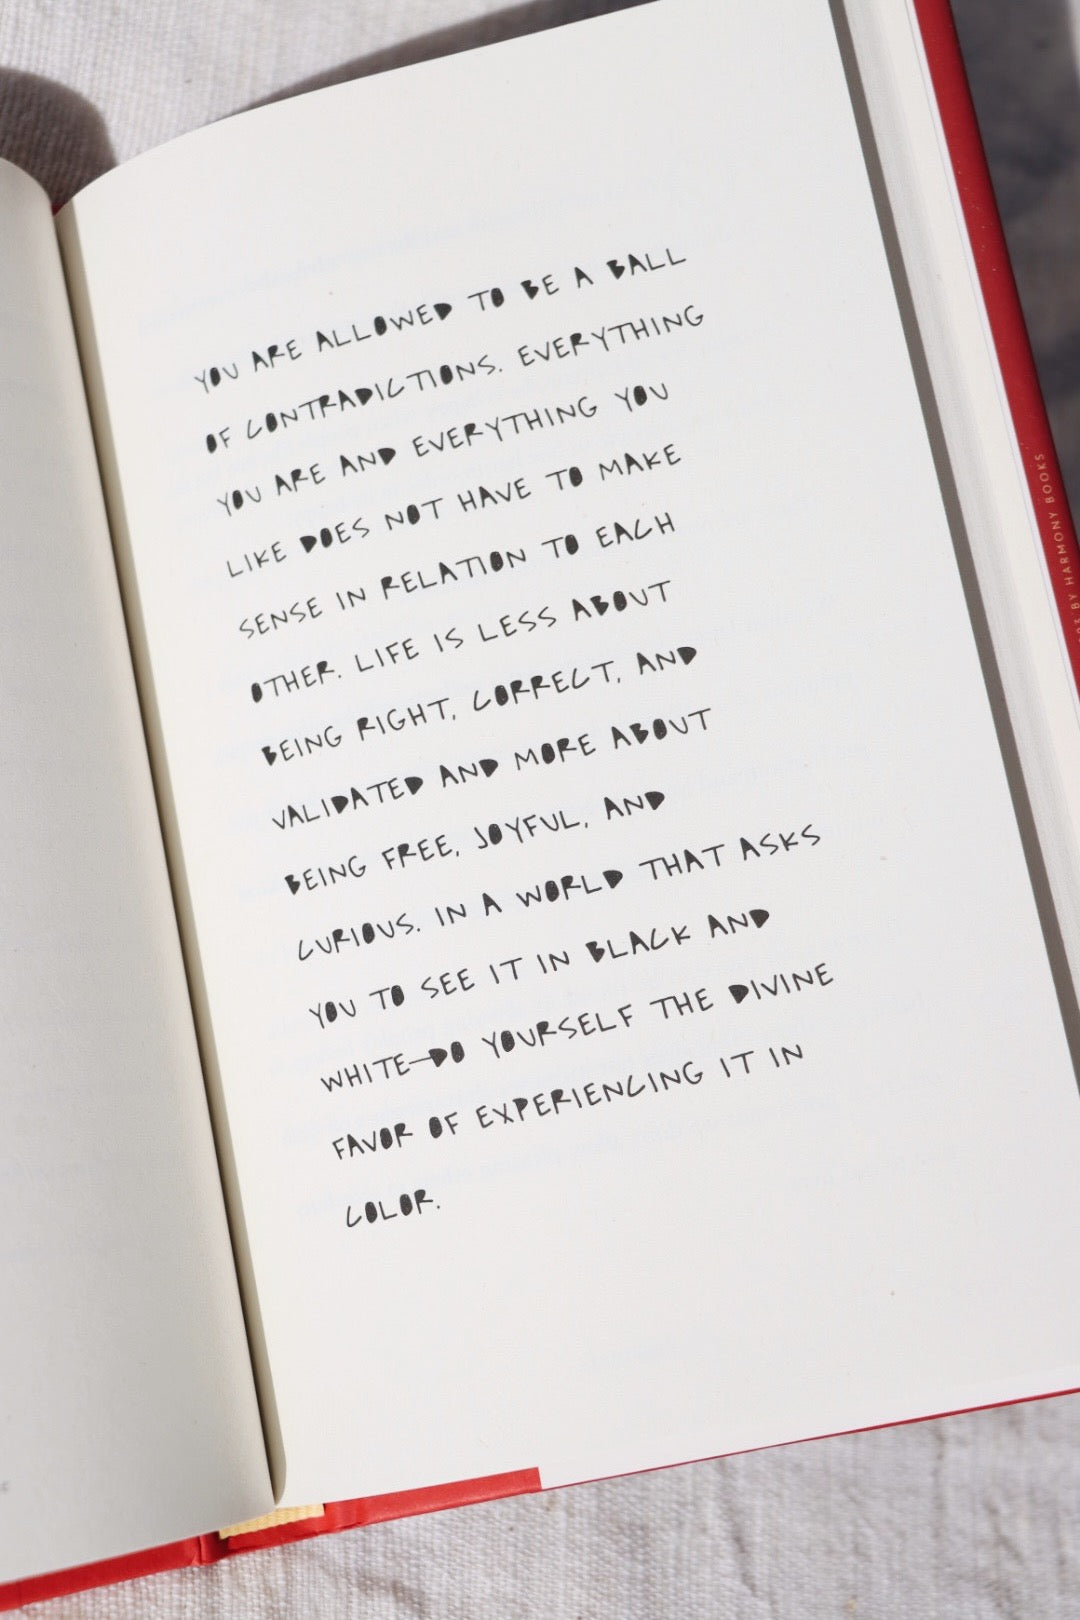 YOU ARE ALLOWED TO BE A BALL
OF CONTRADICTIONS. EVERYTHING
YOU ARE AND EVERYTHING YOU
LIKE DOES NOT HAVE TO MAKE
SENSE IN RELATION TO EACH
OTHER. LIFE IS LESS ABOUT
BEING RIGHT, CORRECT, AND
VALIDATED AND MORE ABOUT
BEING FREE, JOYFUL, AND
CURIOUS. IN A WORLD THAT ASKS
YOU TO SEE IT IN BLACK AND
WHITE—DO YOURSELF THE DIVINE
FAVOR OF EXPERIENCING IT IN
COLOR.
BY HARMONY BOOKS